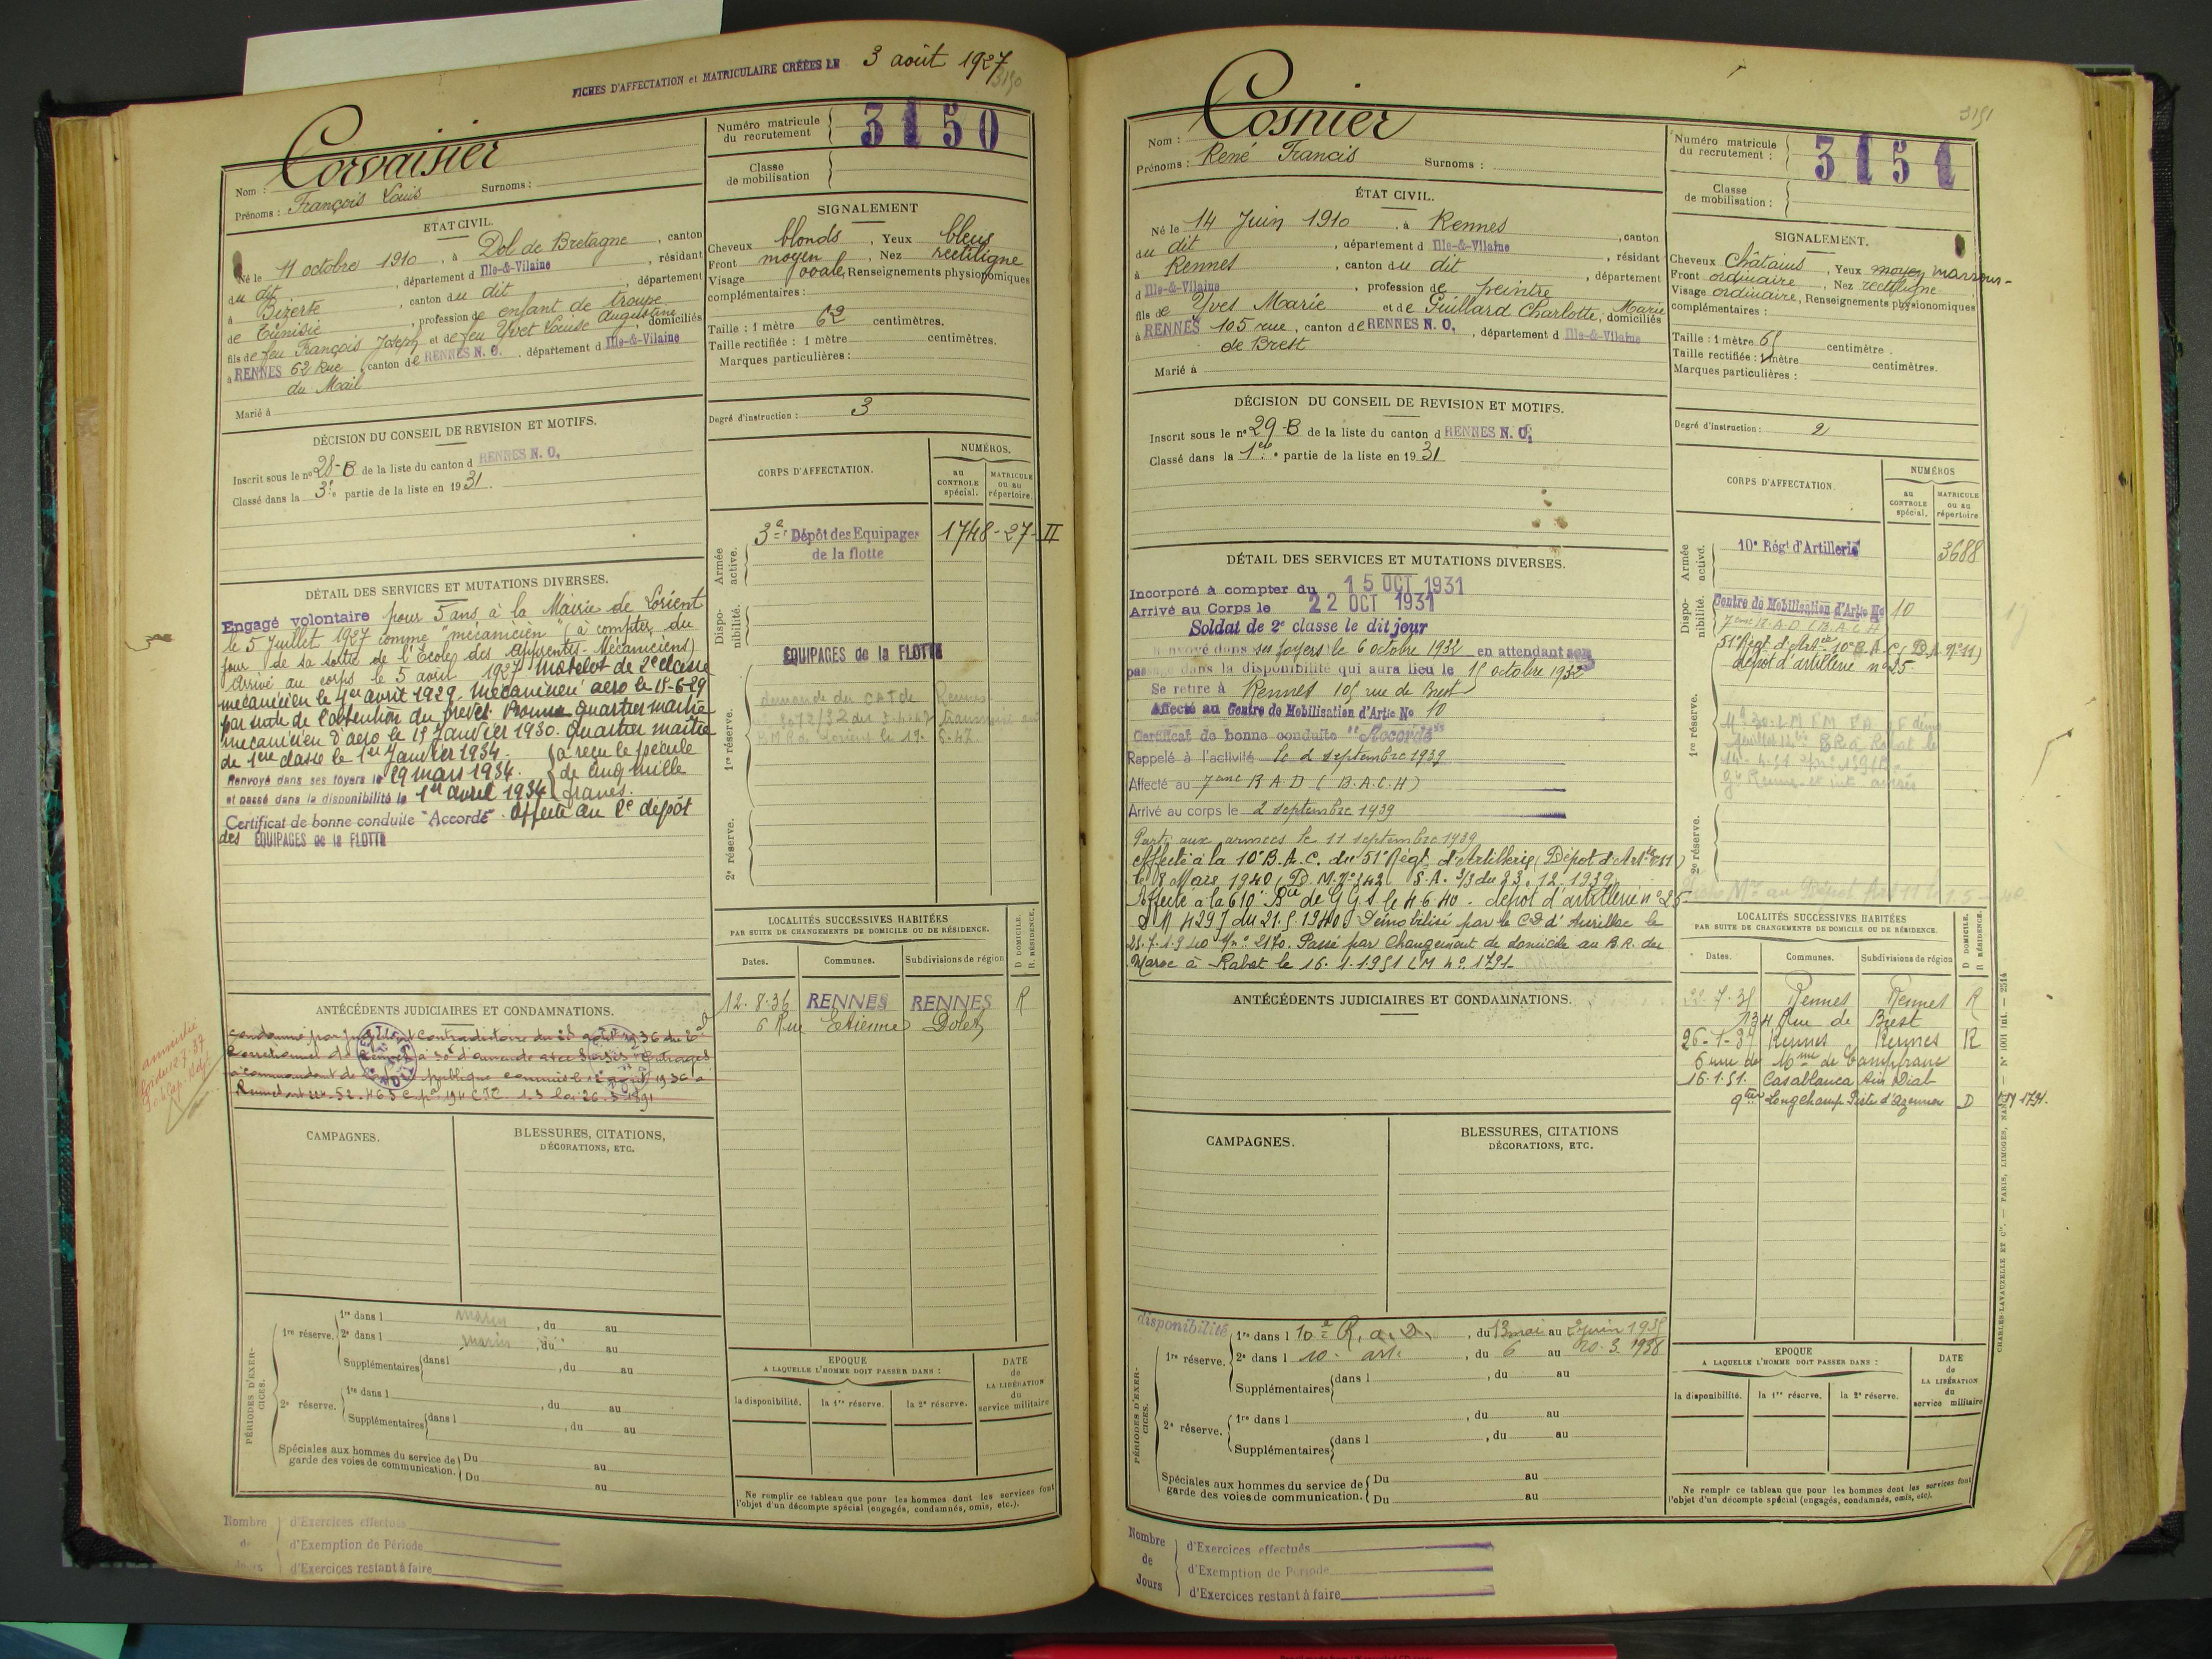 FICHES D'AFFECTATION et MATRICULAIRE CRÉÉES LE 3 août 1927
3150
Nom : Corvaisier
Prénoms : François Louis Surnoms :
Numéro matricule du recrutement 3150
Classe de mobilisation
ÉTAT CIVIL.
Né le 11 octobre 1910, à Dol de Bretagne, canton
du dit, département d Ille-&-Vilaine, résidant
à Bizerte, canton du dit, département
de Tunisie, profession de enfant de troupe
fils de feu François Joseph et de feu Yvet Louise Augustine, domiciliés
à RENNES 62 Rue, canton de RENNES N. O., département d Ille-&-Vilaine
du Mail
Marié à
SIGNALEMENT
Cheveux blonds, Yeux bleus
Front moyen, Nez rectiligne
Visage ovale, Renseignements physionomiques
complémentaires :
Taille : 1 mètre 62 centimètres.
Taille rectifiée : 1 mètre centimètres.
Marques particulières :
Degré d'instruction : 3
DÉCISION DU CONSEIL DE REVISION ET MOTIFS.
Inscrit sous le n° 28-B de la liste du canton d RENNES N. O.
Classé dans la 3e partie de la liste en 1931.
CORPS D'AFFECTATION.
NUMÉROS.
au CONTROLE spécial.
MATRICULE ou au répertoire.
Armée active.
3e Dépôt des Equipages 1748-27-II
de la flotte
Disponibilité.
EQUIPAGES de la FLOTTE
1re réserve.
demande du
Rennes
2e réserve.
DÉTAIL DES SERVICES ET MUTATIONS DIVERSES.
Engagé volontaire pour 5 ans à la Mairie de Lorient
le 5 Juillet 1927 comme "mécanicien" (à compter du
jour de sa sortie de l'École des Apprentis-Mécaniciens)
Arrivé au corps le 5 avril 1927 Matelot de 2e classe
mécanicien le 1er avril 1929. Mécanicien aéro le 15-6-29
par suite de l'obtention du brevet. Promu quartier maître
mécanicien d'aéro le 15 Janvier 1930. Quartier maître
de 1ère classe le 1er Janvier 1934. a reçu le pécule
Renvoyé dans ses foyers le 29 mars 1934. de cinq mille
et passé dans la disponibilité le 1er avril 1934 francs.
Certificat de bonne conduite "Accordé". Affecté au 2e dépôt
des EQUIPAGES de la FLOTTE
LOCALITÉS SUCCESSIVES HABITÉES
PAR SUITE DE CHANGEMENTS DE DOMICILE OU DE RÉSIDENCE.
Dates. Communes. Subdivisions de région
D DOMICILE. R RÉSIDENCE.
12.8.36 RENNES RENNES R
6 Rue Etienne Dolet
ANTÉCÉDENTS JUDICIAIRES ET CONDAMNATIONS.
amnistie
CAMPAGNES.
BLESSURES, CITATIONS,
DÉCORATIONS, ETC.
PÉRIODES D'EXERCICES.
1re réserve. 1re dans l marin, du au
2e dans l marin, du au
Supplémentaires dans l , du au
2e réserve. 1re dans l , du au
Supplémentaires dans l , du au
Spéciales aux hommes du service de garde des voies de communication. Du au
Du au
EPOQUE
A LAQUELLE L'HOMME DOIT PASSER DANS :
la disponibilité. la 1re réserve. la 2e réserve.
DATE de LA LIBÉRATION du service militaire
Ne remplir ce tableau que pour les hommes dont les services font
l'objet d'un décompte spécial (engagés, condamnés, omis, etc.).
Nombre de Jours
d'Exercices effectués
d'Exemption de Période
d'Exercices restant à faire
3151
Nom : Cosnier
Prénoms : René Francis Surnoms :
Numéro matricule du recrutement : 3151
Classe de mobilisation :
ÉTAT CIVIL.
Né le 14 Juin 1910, à Rennes, canton
du dit, département d Ille-&-Vilaine, résidant
à Rennes, canton du dit, département
d Ille-&-Vilaine, profession de peintre
fils de Yves Marie et de Guillard Charlotte, Marie, domiciliés
à RENNES 105 rue, canton de RENNES N. O., département d Ille-&-Vilaine
de Brest
Marié à
SIGNALEMENT.
Cheveux Châtains, Yeux moyen marrons-
Front ordinaire, Nez rectiligne
Visage ordinaire, Renseignements physionomiques
complémentaires :
Taille : 1 mètre 65 centimètre.
Taille rectifiée : 1 mètre centimètres.
Marques particulières :
Degré d'instruction : 2
DÉCISION DU CONSEIL DE REVISION ET MOTIFS.
Inscrit sous le n° 29-B de la liste du canton d RENNES N. O.
Classé dans la 1ère partie de la liste en 1931
CORPS D'AFFECTATION.
NUMÉROS
au CONTROLE spécial.
MATRICULE ou au répertoire
Armée active.
10e Régt d'Artillerie 3688
Disponibilité.
Centre de Mobilisation d'Artie No 10
7ème R.A.D (B.A.C.H
51e Régt d'Artie 10e B.A.C (D.A. N°11)
dépôt d'artillerie n°25
1re réserve.
2e réserve.
DÉTAIL DES SERVICES ET MUTATIONS DIVERSES.
Incorporé à compter du 15 OCT 1931
Arrivé au Corps le 22 OCT 1931
Soldat de 2e classe le dit jour
Renvoyé dans ses foyers le 6 octobre 1932 en attendant son
passage dans la disponibilité qui aura lieu le 15 octobre 1932
Se retire à Rennes 105 rue de Brest
Affecté au Centre de Mobilisation d'Artie No 10
Certificat de bonne conduite "Accordé"
Rappelé à l'activité le 2 septembre 1939
Affecté au 7ème R A D (B.A.C.H)
Arrivé au corps le 2 septembre 1939
Parti aux armées le 11 septembre 1939
Affecté à la 10e B.A.C. du 51e Régt d'Artillerie (Dépôt d'Artie n°11)
le 8 Mars 1940 (D.M. n° 342 S.A. 3/3 du 23.12.1939
Affecté à la 610e Bie de G G S le 4 6 40 - dépôt d'artillerie n° 25
D M 4297 du 21.5.1940 Démobilisé par le CD d'Aurillac le
25.7.1940 n° 2170. Passé par Changement de domicile au B.R. du
Maroc à Rabat le 16.1.1951 LM n° 1791-
LOCALITÉS SUCCESSIVES HABITÉES
PAR SUITE DE CHANGEMENTS DE DOMICILE OU DE RÉSIDENCE.
Dates. Communes. Subdivisions de région
D DOMICILE. R RÉSIDENCE.
7.35 Rennes Rennes R
134 Rue de Brest
26-1-37 Rennes Rennes R
6 rue de
16.1.51. Casablanca Ain Diab
Longchamp Piste d'Azemmour D 1791.
ANTÉCÉDENTS JUDICIAIRES ET CONDAMNATIONS.
CAMPAGNES.
BLESSURES, CITATIONS
DÉCORATIONS, ETC.
disponibilité
PÉRIODES D'EXERCICES.
1re réserve. 1re dans l 10e R.a.D., du 13 mai au 2 juin 1935
2e dans l 10e art., du 6 au 20.3.1938
Supplémentaires dans l , du au
2e réserve. 1re dans l , du au
Supplémentaires dans l , du au
Spéciales aux hommes du service de garde des voies de communication. Du au
Du au
EPOQUE
A LAQUELLE L'HOMME DOIT PASSER DANS :
la disponibilité. la 1re réserve. la 2e réserve.
DATE de LA LIBÉRATION du service militaire
Ne remplir ce tableau que pour les hommes dont les services font
l'objet d'un décompte spécial (engagés, condamnés, omis, etc).
CHARLES-LAVAUZELLE ET Cie. — PARIS, LIMOGES, NANCY — N° 1001 int. — 2514
Nombre de Jours
d'Exercices effectués
d'Exemption de Période
d'Exercices restant à faire